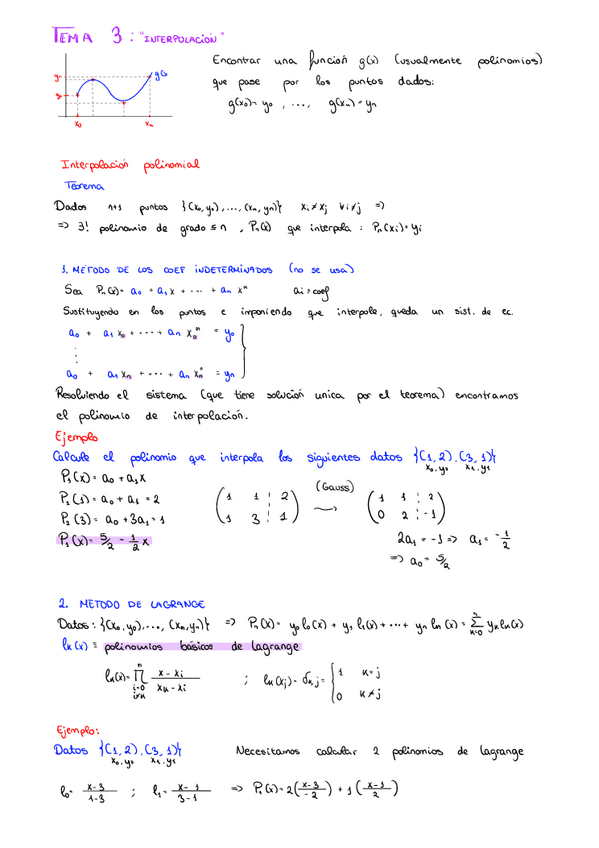 TEMA 3: "INTERPOLACIÓN"
Encontrar una función g(x) (usualmente polinomios)
que pase por los puntos dados:
g(x₀)=y₀ , ..., g(xₙ)=yₙ
g(x)
x₀ xₙ
Interpolación polinomial
Teorema
Dados n+1 puntos {(x₀,y₀),...,(xₙ,yₙ)} xᵢ≠xⱼ ∀i≠j =>
=> ∃! polinomio de grado ≤ n , Pₙ(x) que interpola : Pₙ(xᵢ)=yᵢ
1. MÉTODO DE LOS COEF INDETERMINADOS (no se usa)
Sea Pₙ(x)= a₀ + a₁x + ... + aₙ xⁿ aᵢ=coef
Sustituyendo en los puntos e imponiendo que interpole, queda un sist. de ec.
a₀ + a₁x₀ + ... + aₙ x₀ⁿ = y₀
⋮
a₀ + a₁xₙ + ... + aₙ xₙⁿ = yₙ
Resolviendo el sistema (que tiene solución unica por el teorema) encontramos
el polinomio de interpolación.
Ejemplo
Calcule el polinomio que interpola los siguientes datos {(1,2),(3,1)}
x₀,y₀ x₁,y₁
P₁(x)= a₀ + a₁x
P₁(1)= a₀ + a₁ = 2
P₁(3)= a₀ + 3a₁ = 1
P₁(x)= 5/2 - 1/2 x
(1 1 | 2)
(1 3 | 1)
(Gauss)
(1 1 | 2)
(0 2 | -1)
2a₁ = -1 => a₁ = -1/2
=> a₀ = 5/2
2. METODO DE LAGRANGE
Datos: {(x₀,y₀),..., (xₙ,yₙ)} => Pₙ(x)= y₀ l₀(x) + y₁ l₁(x) + ... + yₙ lₙ(x) = Σ yₖ lₖ(x)
lₖ(x) ≡ polinomios básicos de lagrange
lₖ(x)= ∏ⁿ i=0 i≠k (x-xᵢ)/(xₖ-xᵢ) ; lₖ(xⱼ)= δₖ,ⱼ = { 1 k=j
0 k≠j
Ejemplo:
Datos {(1,2),(3,1)} Necesitamos calcular 2 polinomios de lagrange
x₀,y₀ x₁,y₁
l₀= (x-3)/(1-3) ; l₁= (x-1)/(3-1) => P₁(x)= 2((x-3)/-2) + 1((x-1)/2)